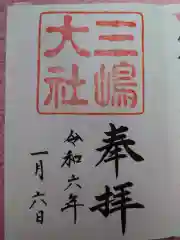 三嶋
大社
奉拝
令和六年
一月六日